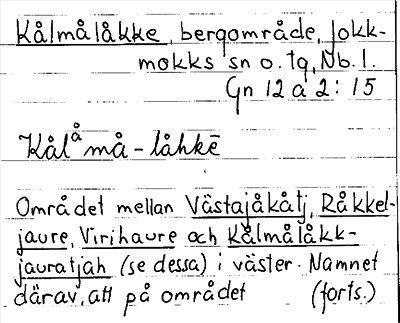 Kålmålåkke, bergområde, Jokk-
mokks sn o. tg, Nb. l.
Gn 12 a 2: 15
Kålåmå-låhkē
Området mellan Västajåkåtj, Råkkel-
jaure, Virihaure och Kålmålåkk-
jauratjah (se dessa) i väster. Namnet
därav, att på området (forts.)